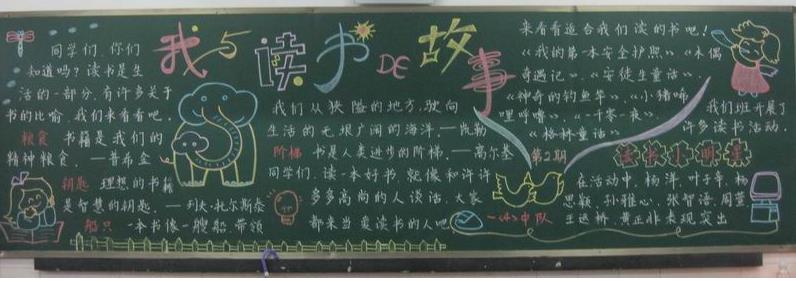 我与读书DE故事
同学们,你们
知道吗?读书是生
活的一部分,有许多关于
书的比喻,我们来看看吧。
粮食 书籍是我们的
精神粮食。——普希金
钥匙 理想的书籍
是智慧的钥匙。——列夫·托尔斯泰
船只 一本书像一艘船,带领
我们从狭隘的地方,驶向
生活的无垠广阔的海洋。——凯勒
阶梯 书是人类进步的阶梯。——高尔基
同学们,读一本好书,就像和许许
多多高尚的人谈话,大家
都来当爱读书的人吧
来看看适合我们读的书吧!
《我的第一本安全护照》、《木偶
奇遇记》、《安徒生童话》、
《神奇的钓鱼竿》、《小猪唏
哩呼噜》、《一千零一夜》、
《格林童话》
第2期
一〈4〉中队
我们班开展了
许多读书活动,
读书小明星
在活动中,杨洋、叶子年、杨
思颖、孙雅心、张智语、周萱
王运桥、黄正非表现突出